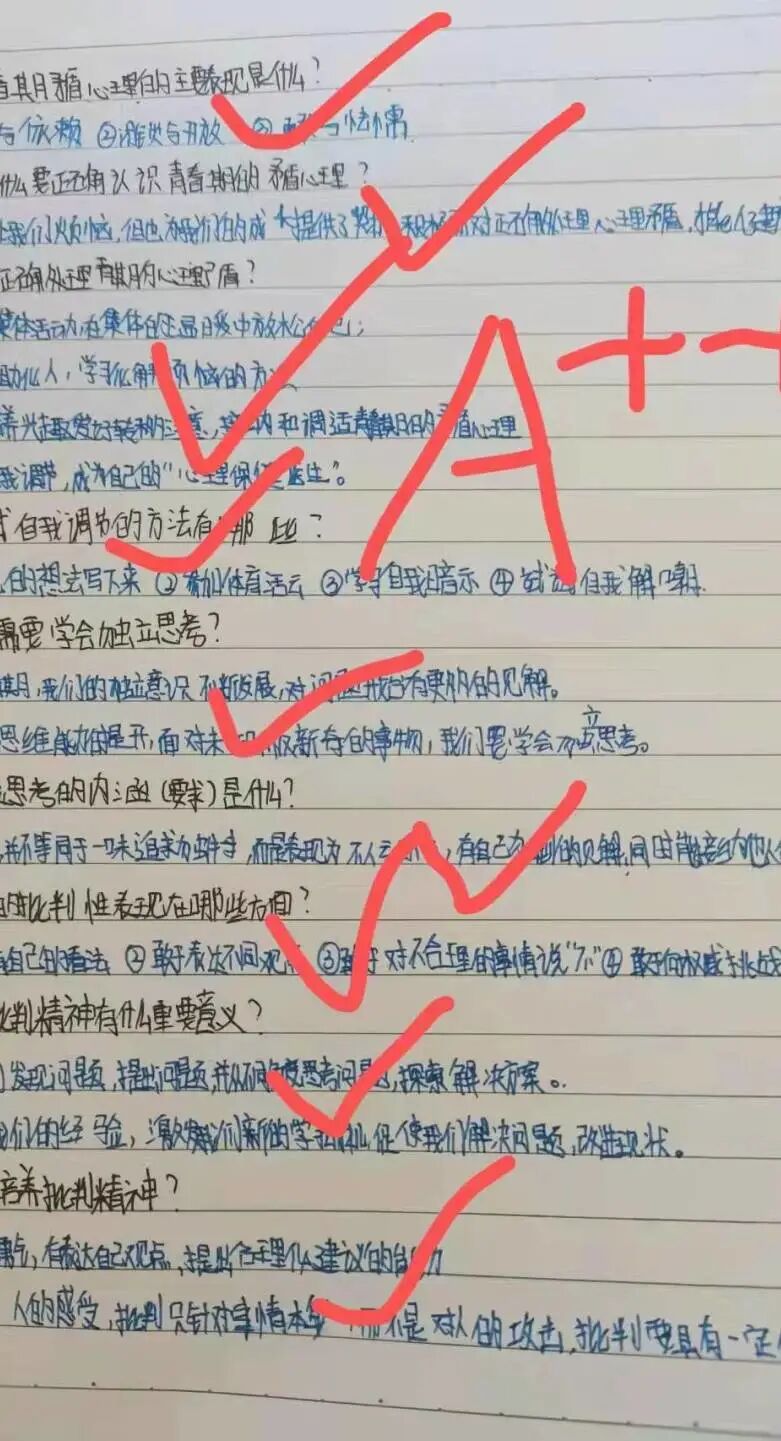 期矛盾心理的主要表现是什么?
与依赖 ②闭锁与开放 ③ 与怯懦
什么要正确认识青春期的矛盾心理?
让我们烦恼,但也为我们的成长提供了契机 积极面对正确处理心理矛盾,
正确处理青春期的心理矛盾?
集体活动,在集体的温暖中放松自己;
助他人,学习化解烦恼的方法
养兴趣爱好转移注意,接纳和调适青春期的矛盾心理
我调节,成为自己的“心理保健医生”。
自我调节的方法有哪些?
的想法写下来 ②参加体育活动 ③学习自我暗示 ④尝试自我解嘲.
需要学会独立思考?
期,我们的独立意识不断发展,对问题开始有更多的见解。
思维能力的提升,面对未知 新奇的事物,我们要学会独立思考。
思考的内涵(要求)是什么?
,并不等同于一味追求独特,而是表现为不人云亦云,有自己独到的见解,同时能接纳他人
的批判性表现在哪些方面?
自己的看法 ②敢于表达不同观点 ③敢于对不合理的事情说“不”④敢于向权威挑战
批判精神有什么重要意义?
发现问题,提出问题,并从不同角度思考问题,探索解决方案。
我们的经验,激发我们新的学习动机,促使我们解决问题,改进现状。
培养批判精神?
有表达自己观点,提出合理化建议的能力
人的感受,批判只针对事情本身,而不是对人的攻击,批判要具有一定
A++